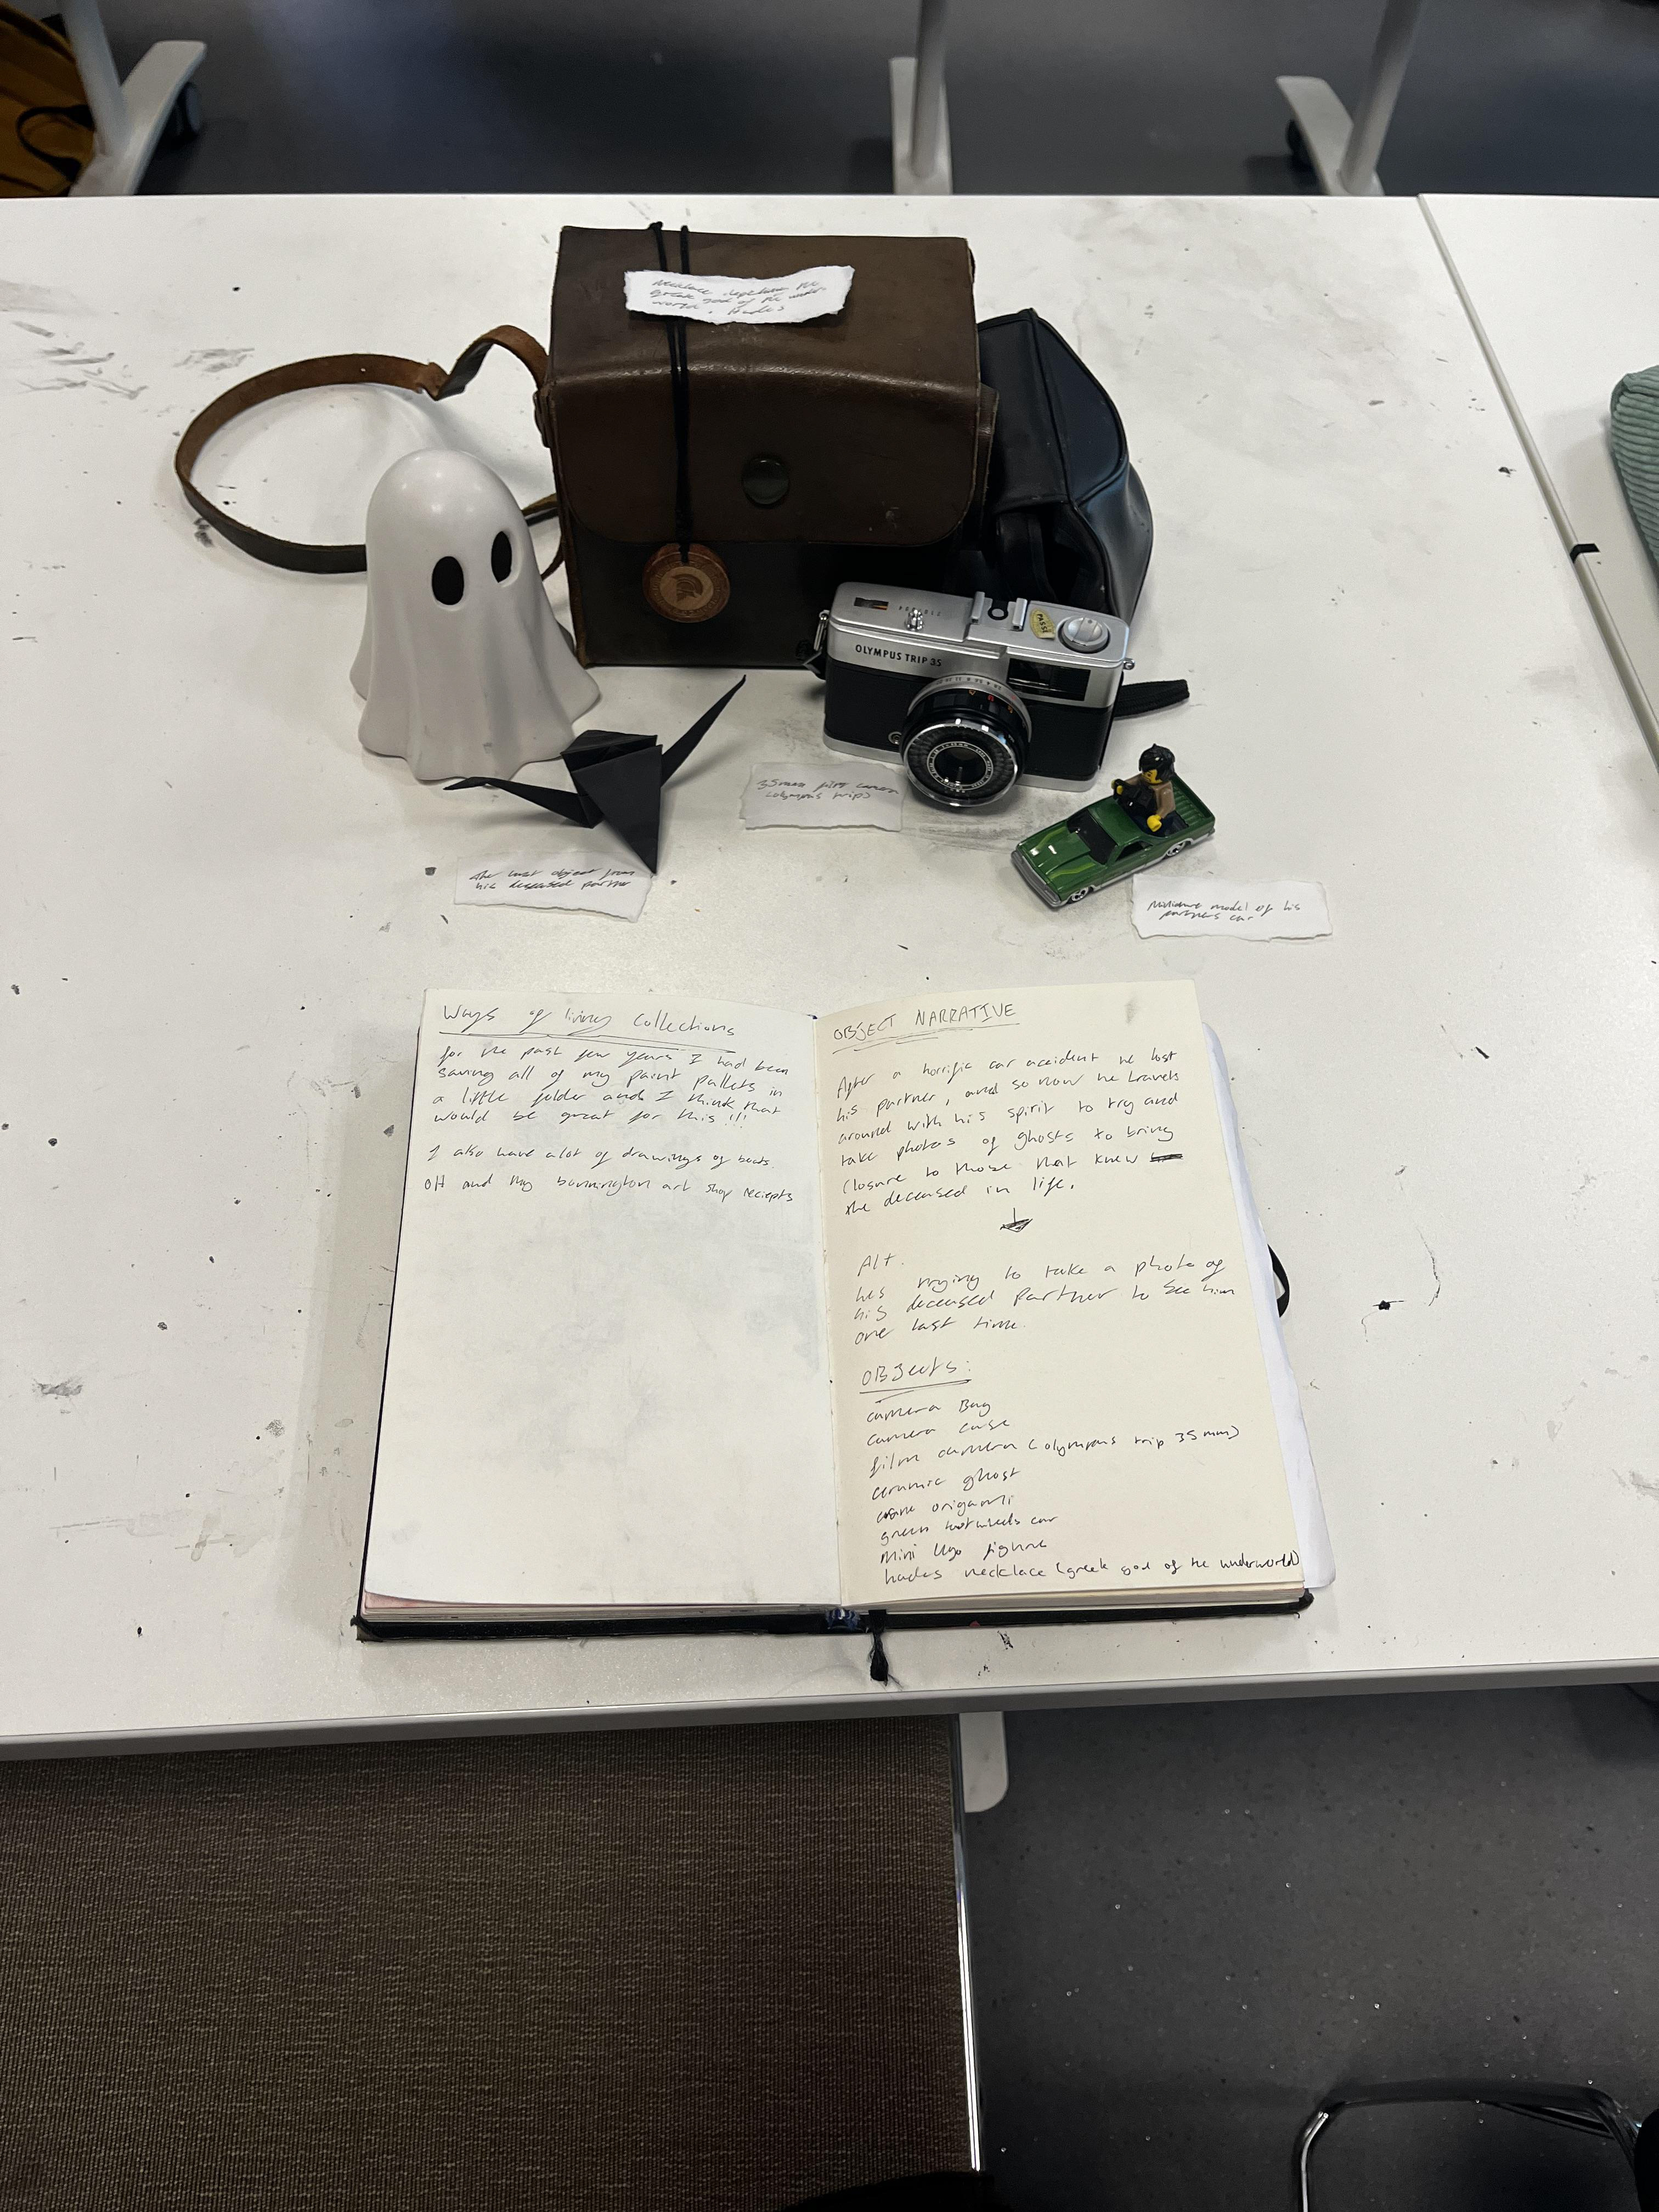 Necklace depicture the
greek god of the under
world. Hades
OLYMPUS TRIP 35
PASSED
35mm film camera
(olympus trip)
the last object from
his deceased partner
Miniature model of his
partners car
Ways of living collections
for the past few years I had been
saving all of my paint pallets in
a little folder and I think that
would be great for this !!!
I also have a lot of drawings of boats.
OH and my bonnington art shop reciepts
OBJECT NARRATIVE
After a horrific car accident he lost
his partner, and so now he travels
around with his spirit to try and
take photos of ghosts to bring
closure to those that knew
the deceased in life.
Alt.
hes trying to take a photo of
his deceased partner to see him
one last time.
OBJects:
camera Bag
camera case
film camera (olympus trip 35mm)
ceramic ghost
crane origami
green hotwheels car
mini lego figure
hades necklace (greek god of the underworld)